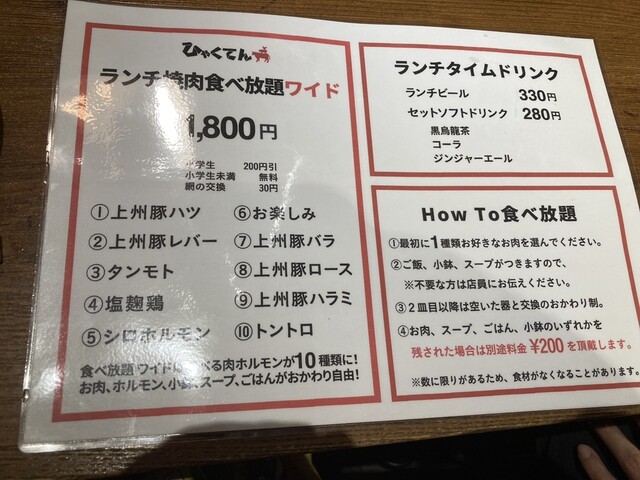 ひゃくてん
ランチ焼肉食べ放題ワイド
1,800円
小学生 200円引
小学生未満 無料
網の交換 30円
①上州豚ハツ
②上州豚レバー
③タンモト
④塩麹鶏
⑤シロホルモン
⑥お楽しみ
⑦上州豚バラ
⑧上州豚ロース
⑨上州豚ハラミ
⑩トントロ
食べ放題ワイドは べる肉ホルモンが10種類に!
お肉、ホルモン、小鉢、スープ、ごはんがおかわり自由!
ランチタイムドリンク
ランチビール 330円
セットソフトドリンク 280円
黒烏龍茶
コーラ
ジンジャーエール
How To食べ放題
①最初に1種類お好きなお肉を選んでください。
②ご飯、小鉢、スープがつきますので、
※不要な方は店員にお伝えください。
③2皿目以降は空いた器と交換のおかわり制。
④お肉、スープ、ごはん、小鉢のいずれかを
残された場合は別途料金¥200を頂戴します。
※数に限りがあるため、食材がなくなることがあります。